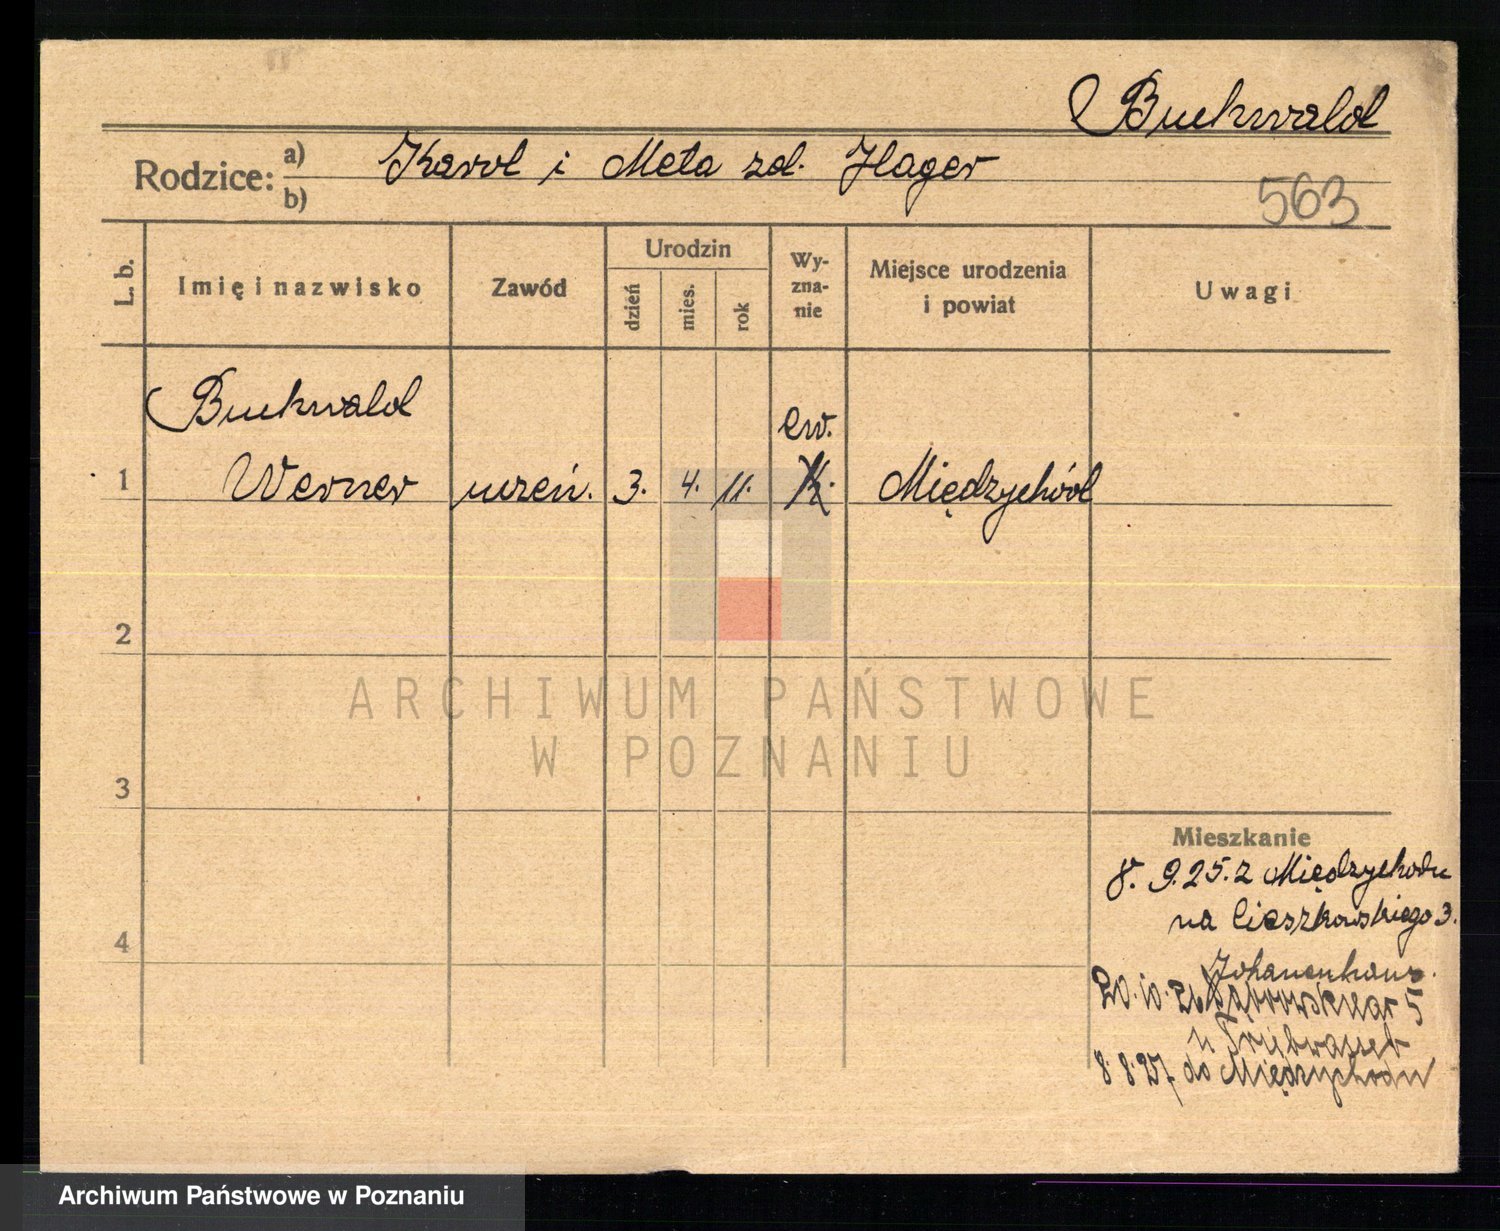 Buckwald
Rodzice: a) Karol i Meta zd. Hager
b)
563
L. b.
Imię i nazwisko
Zawód
Urodzin
dzień
mies.
rok
Wy-
zna-
nie
Miejsce urodzenia
i powiat
Uwagi
Buckwald
ew.
1 Werner uczeń. 3. 4. 11. Międzychód
2
ARCHIWUM PAŃSTWOWE
W POZNANIU
3
Mieszkanie
8. 9.25. z Międzychodu
na Cieszkowskiego 3.
4
Johanenhaus.
20.10.26 5
u
8.8.27 do Międzychodu
Archiwum Państwowe w Poznaniu